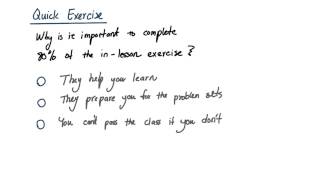 Quick Exercise
Why is it important to complete
80% of the in-lesson exercise?
They help you learn
They prepare you for the problem sets
You can't pass the class if you don't